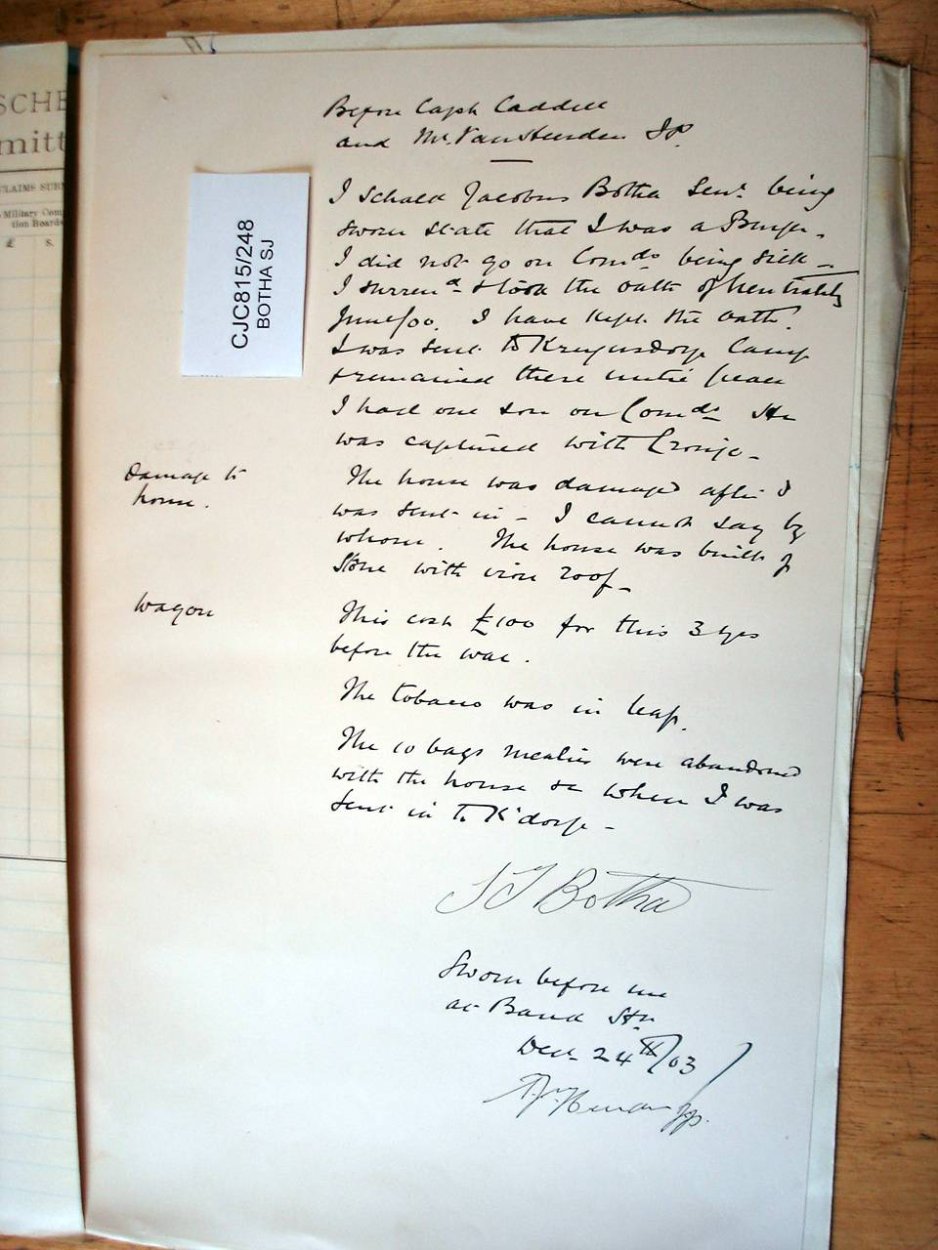 SCHE
mitt
CLAIMS SUB
Military Com
tion Boards
£ S.
CJC815/248
BOTHA SJ
Before Capt Caddell
and Mr. Van Heerden J.P.
I Schald Jacobus Botha Senr. being
sworn state that I was a Burger.
I did not go on Comdo being sick –
I surrend & took the oath of Neutrality
June/00. I have kept the oath.
I was sent to Krugersdorp Camp
& remained there until peace
I had one son on Comdo He
was captured with Cronje –
Damage to
house.
The house was damaged after I
was sent in – I cannot say by
whom. The house was built of
Stone with iron roof –
Wagon
This cost £100 for this 3 yrs
before the war.
The tobacco was in leaf.
The 10 bags mealies were abandoned
with the house &c when I was
sent in to K'dorp –
S J Botha
Sworn before me
at Band Stn
Decr 24th/03
JP.